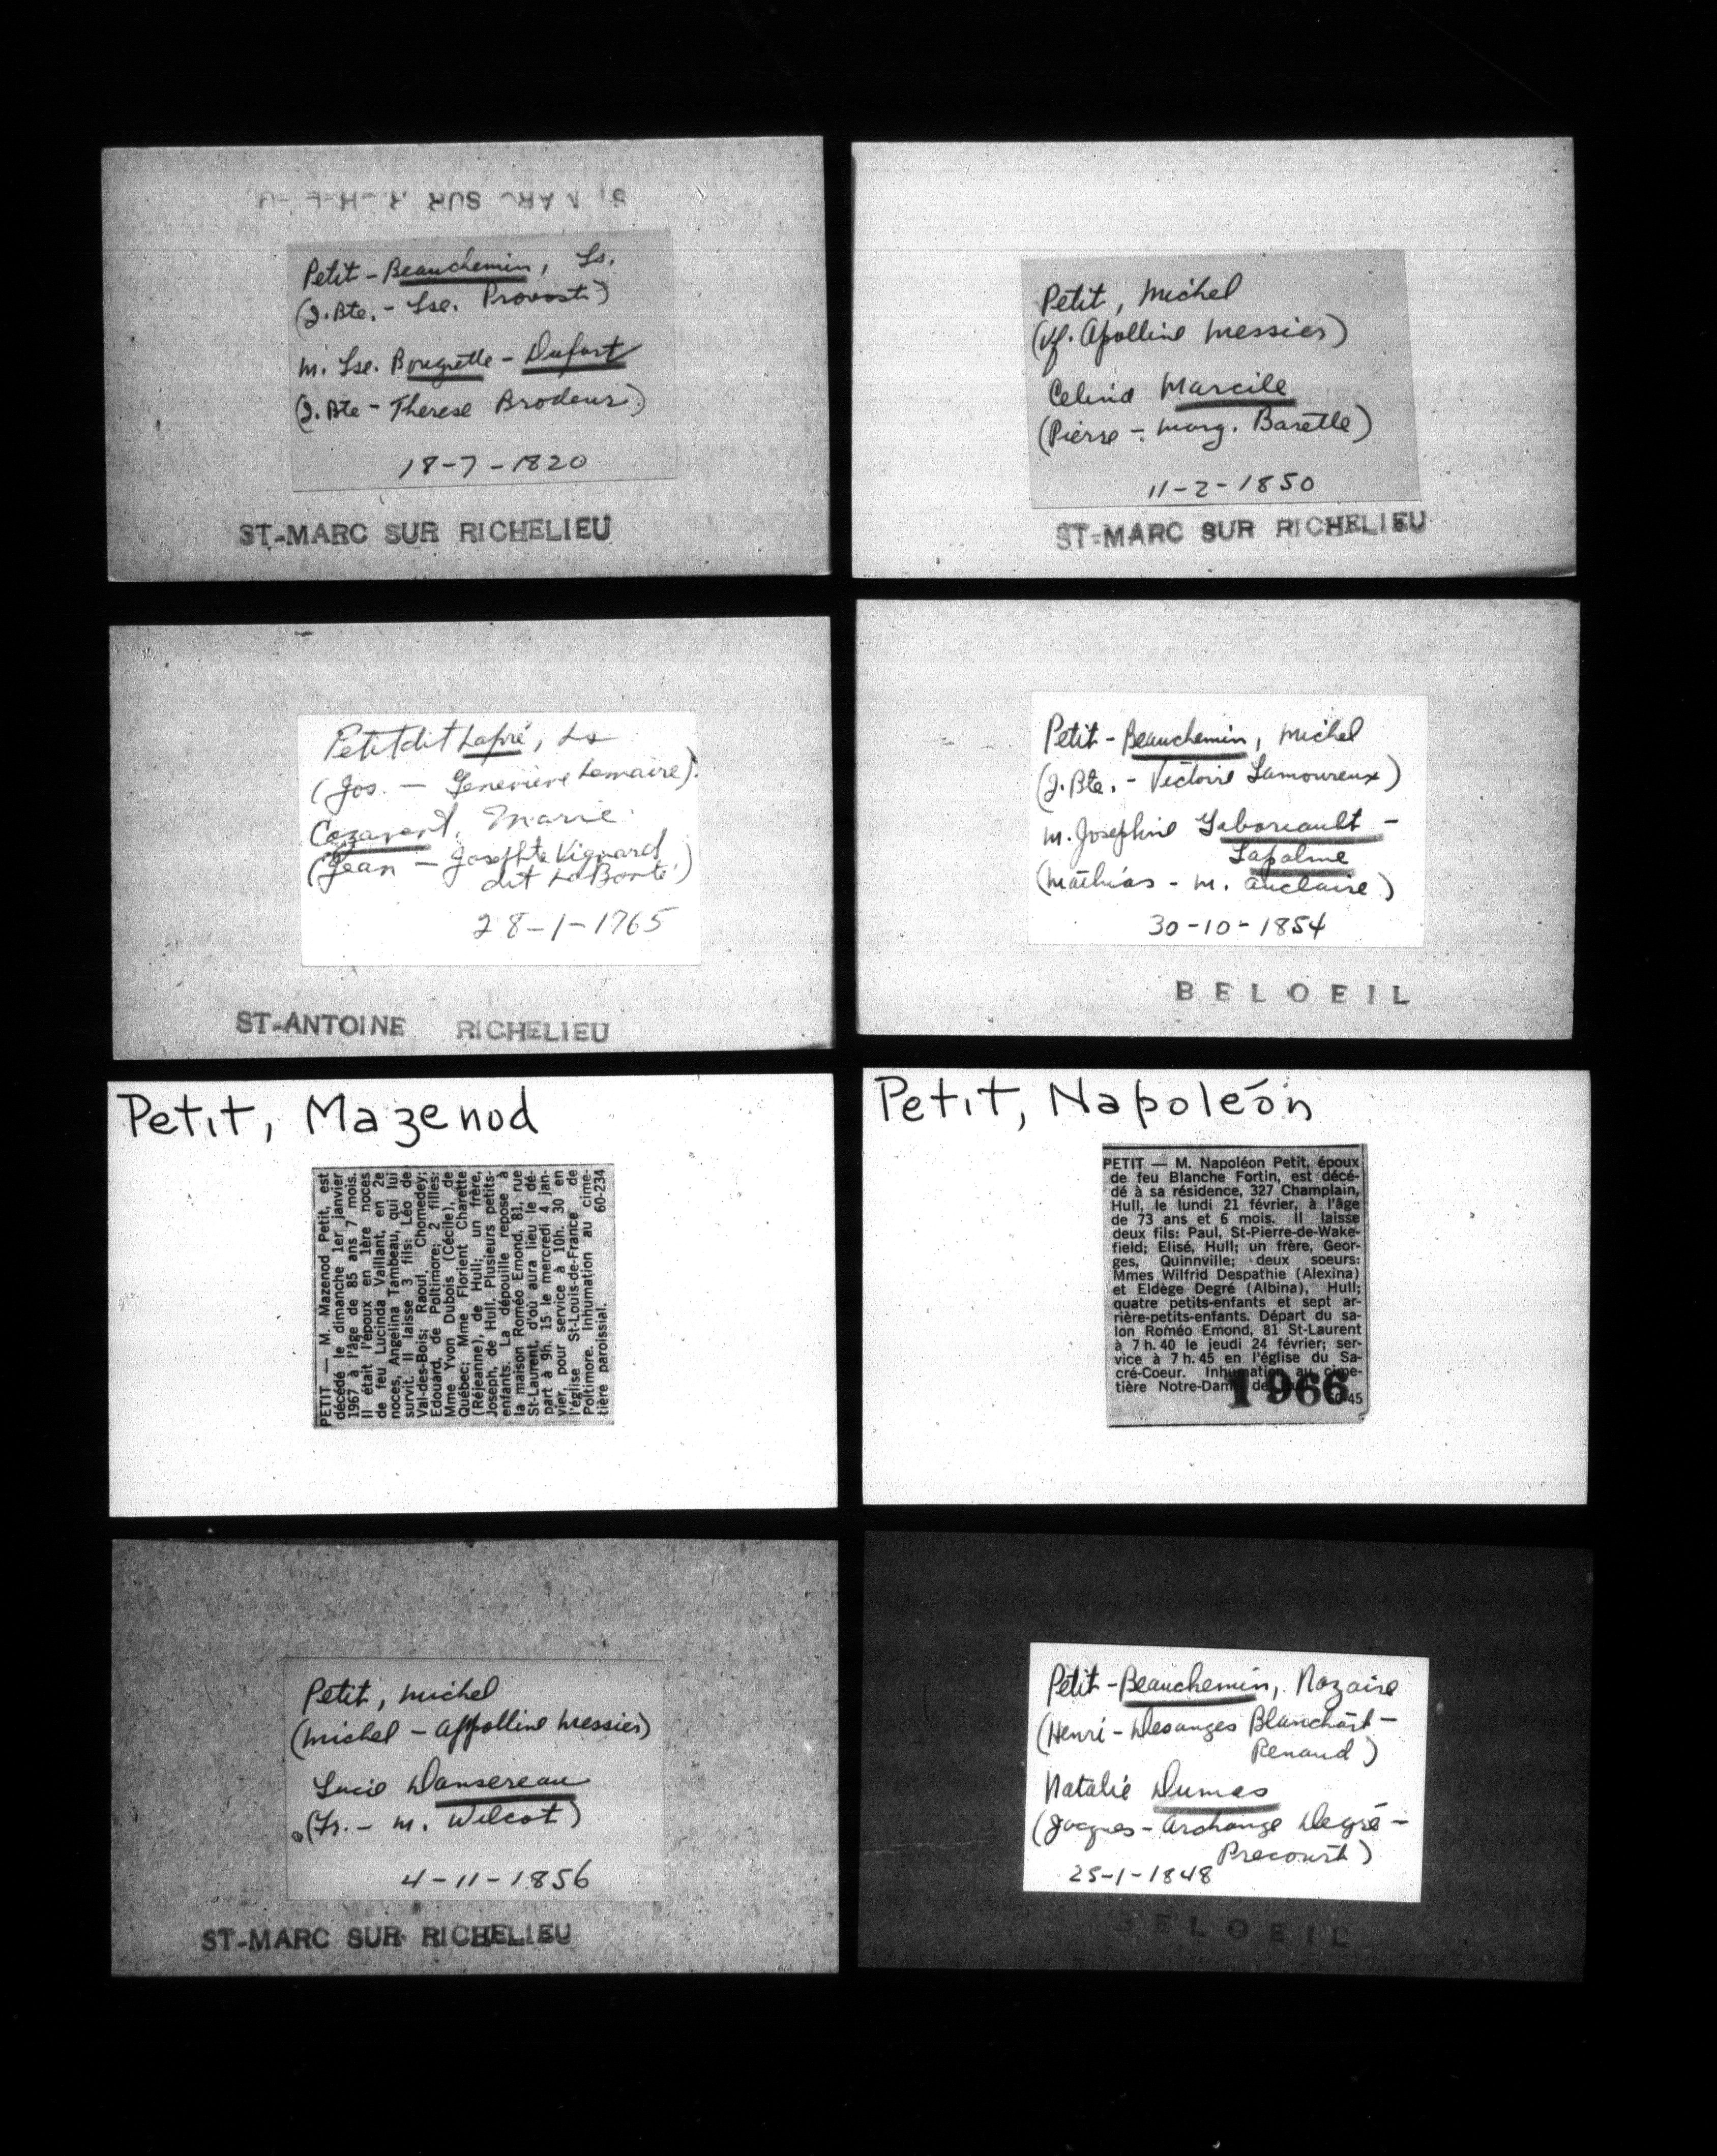 ST-MARC SUR RICHELIEU
Petit-Beauchemin, Ls.
(J.Bte. - Lse. Provost)
m. Lse. Bougrette - Dufort
(J. Bte - Therese Brodeur)
18-7-1820
ST-MARC SUR RICHELIEU
Petit, Michel
(Vf. Apolline Messier)
Celina Marcile
(Pierre - Marg. Barette)
11-2-1850
ST-MARC SUR RICHELIEU
Petit dit Lapré, Ls
(Jos. — Geneviève Lemaire)
, Marie
(Jean — Josephte Vignard
dit LaBonté)
28-1-1765
ST-ANTOINE RICHELIEU
Petit-Beauchemin, Michel
(J.Bte. - Victoire Lamoureux)
m. Josephine Laboriault -
Lapalme
(Mathias - M. Auclaire)
30-10-1854
BELOEIL
Petit, Mazenod
PETIT — M. Mazenod Petit, est
décédé le dimanche 1er janvier
1967 à l'âge de 85 ans 7 mois.
Il était l'époux en 1ère noces
de feu Lucinda Vaillant, en 2e
noces, Angélina Tambeau, qui lui
survit. Il laisse 3 fils: Léo de
Val-des-Bois; Raoul, Chomedey;
Edouard, de Poltimore; 2 filles:
Mme Yvon Dubois (Cécile), de
Québec; Mme Florient Charette
(Réjeanne), de Hull; un frère,
Joseph, de Hull. Plusieurs petits-
enfants. La dépouille repose à
la maison Roméo Emond, 81, rue
St-Laurent, d'où aura lieu le dé-
part à 9h. 15 le mercredi 4 jan-
vier, pour service à 10h. 30 en
l'église St-Louis-de-France de
Poltimore. Inhumation au cime-
tière paroissial. 60-234
Petit, Napoléon
PETIT — M. Napoléon Petit, époux
de feu Blanche Fortin, est décé-
dé à sa résidence, 327 Champlain,
Hull, le lundi 21 février, à l'âge
de 73 ans et 6 mois. Il laisse
deux fils: Paul, St-Pierre-de-Wake-
field; Elisé, Hull; un frère, Geor-
ges, Quinnville; deux soeurs:
Mmes Wilfrid Despathie (Alexina)
et Eldège Degré (Albina), Hull;
quatre petits-enfants et sept ar-
rière-petits-enfants. Départ du sa-
lon Roméo Emond, 81 St-Laurent
à 7 h. 40 le jeudi 24 février; ser-
vice à 7 h. 45 en l'église du Sa-
cré-Coeur. Inhumation au cime-
tière Notre-Dame de
1966
Petit, Michel
(Michel - Appolline Messier)
Lucie Dansereau
(Fr. - M. Wilcot)
4-11-1856
ST-MARC SUR RICHELIEU
Petit-Beauchemin, Nazaire
(Henri - Desanges Blanchart-
Renaud)
Natalie Dumas
(Jacques - Archange Degré -
Precourt)
25-1-1848
BELOEIL